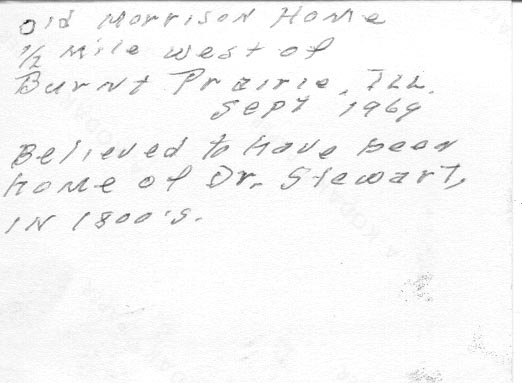 Old Morrison Home
1/2 Mile west of
Burnt Prairie, ILL.
Sept 1969
Believed to have been
home of Dr. Stewart,
IN 1800's.